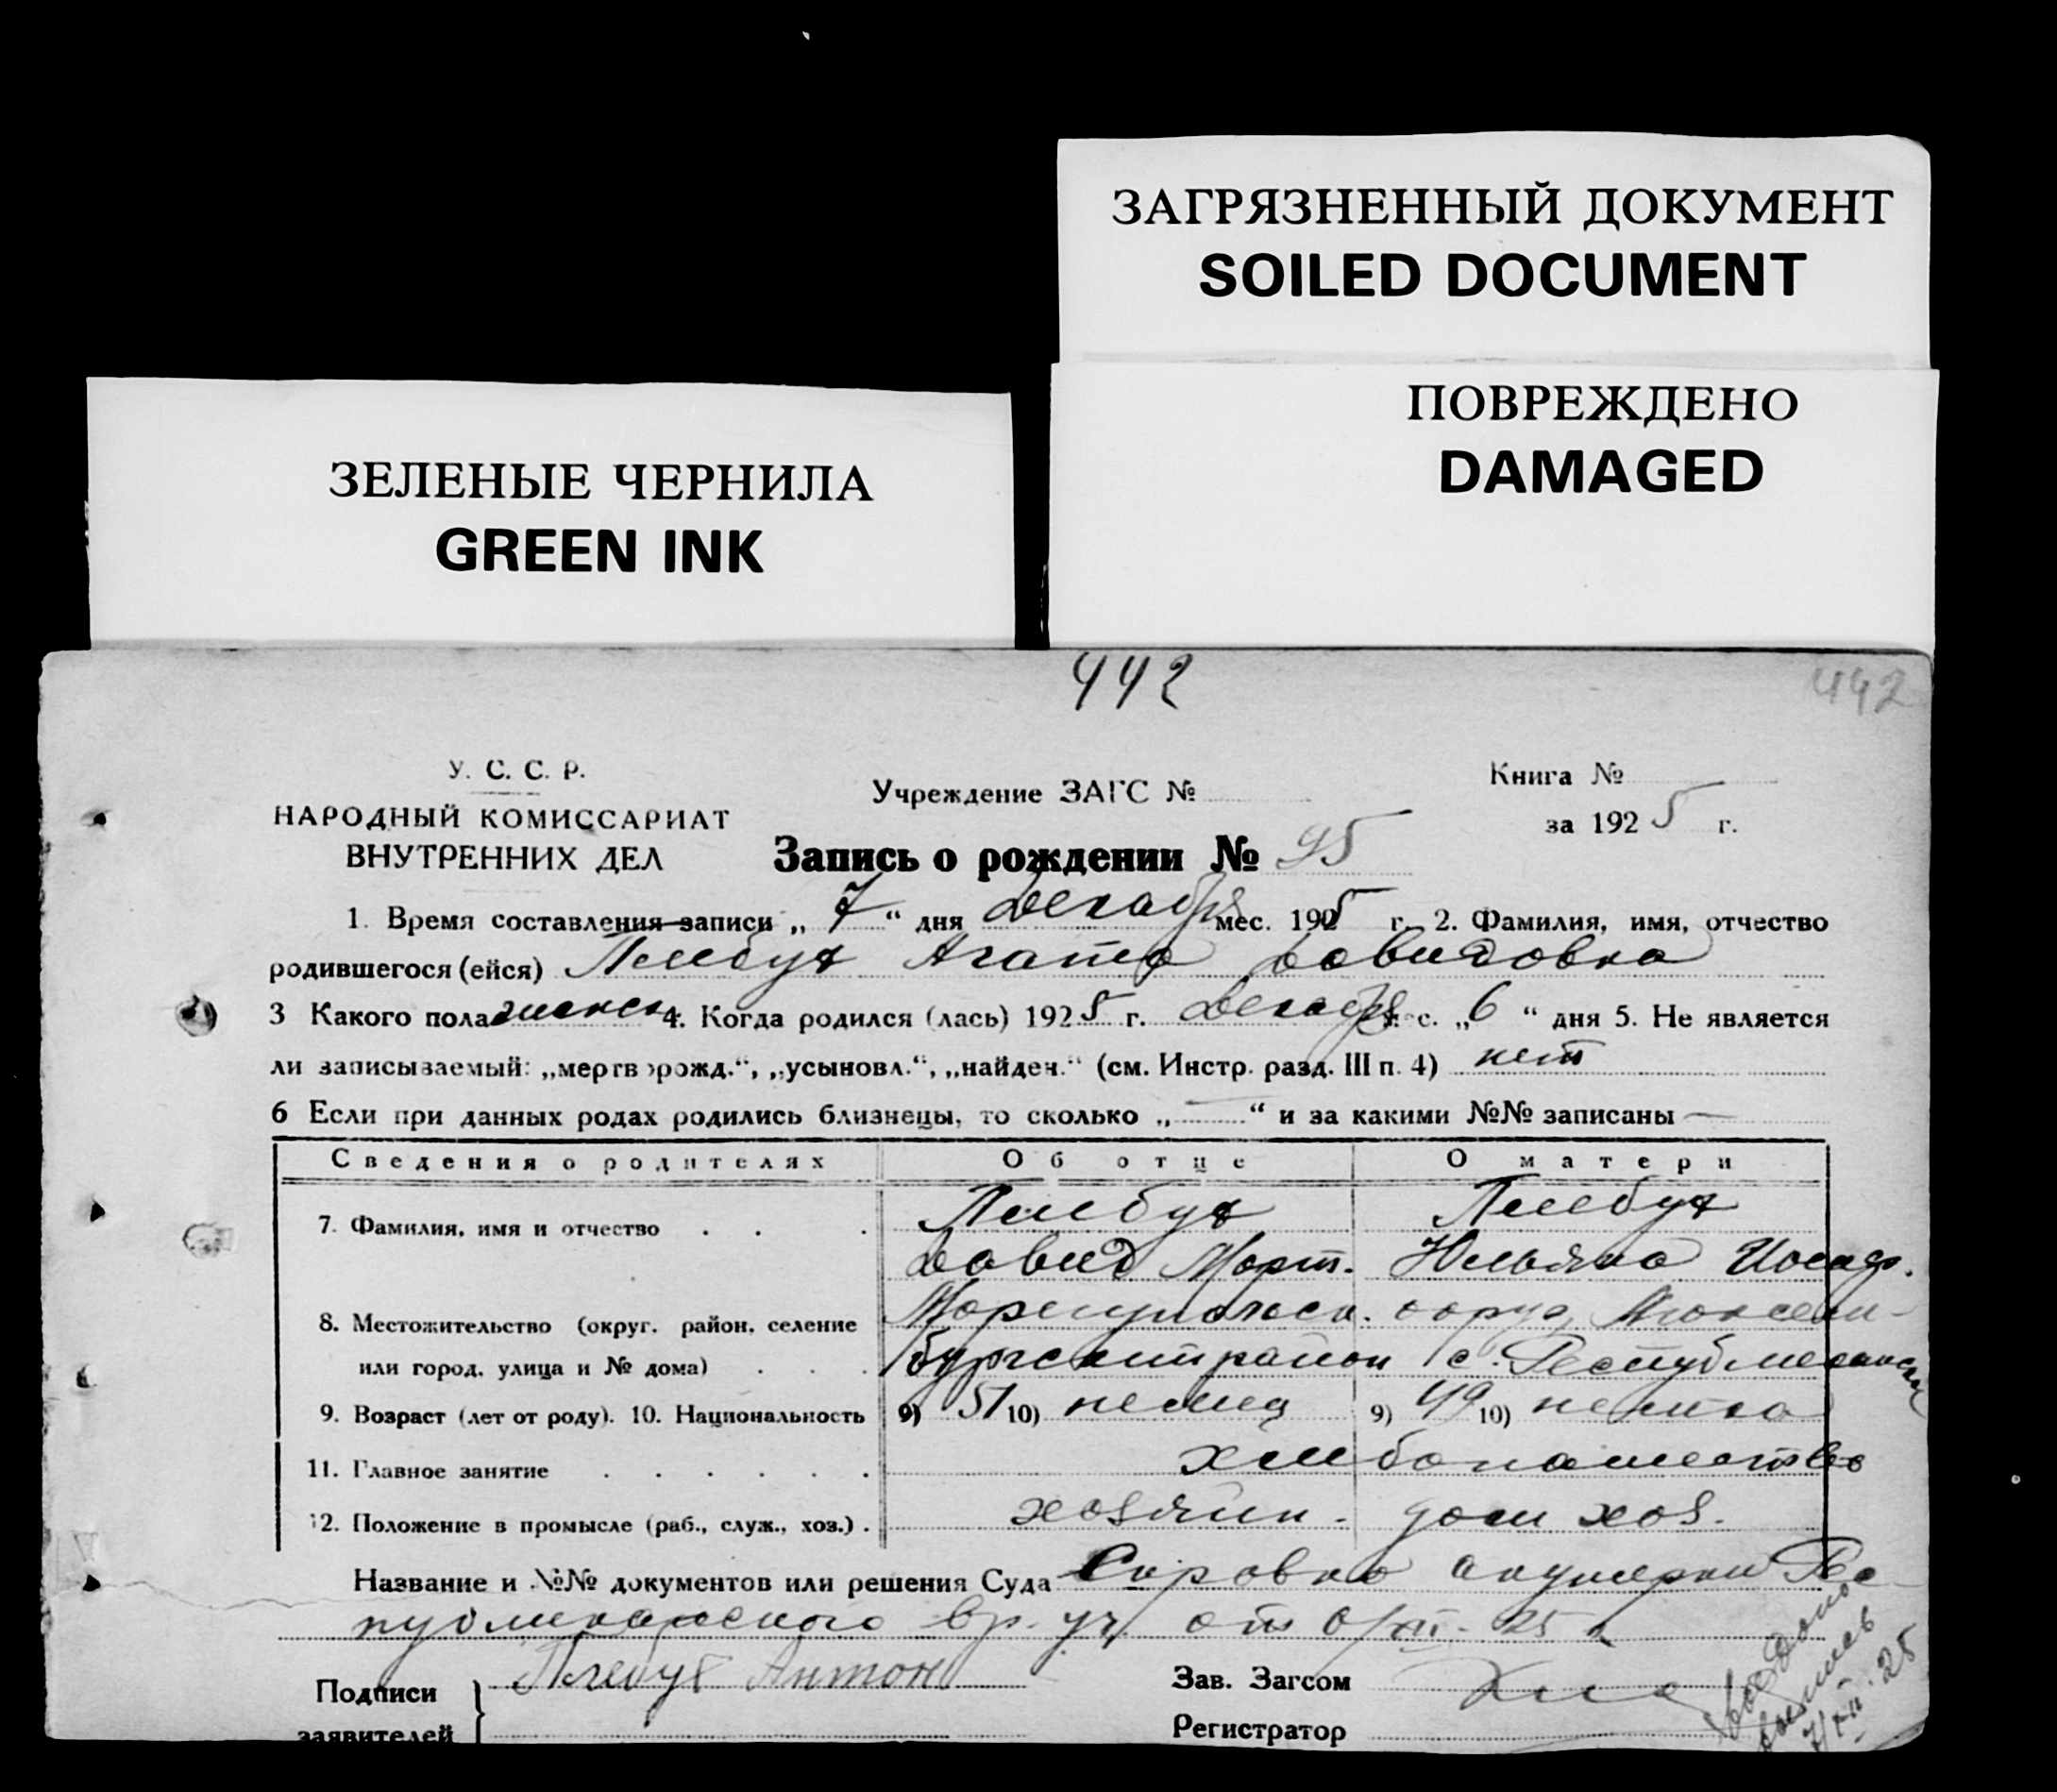 ЗАГРЯЗНЕННЫЙ ДОКУМЕНТ
SOILED DOCUMENT
ПОВРЕЖДЕНО
DAMAGED
ЗЕЛЕНЫЕ ЧЕРНИЛА
GREEN INK
442
442
У. С. С. Р.
НАРОДНЫЙ КОМИССАРИАТ
ВНУТРЕННИХ ДЕЛ
Учреждение ЗАГС №
Книга №
за 1925 г.
Запись о рождении № 95
1. Время составления записи „ 7 “ дня Декабря мес. 1925 г. 2. Фамилия, имя, отчество
родившегося (ейся)Плебух Агата Давидовна
3 Какого пола женск 4. Когда родился (лась) 1925 г. Декабря мес. „ 6 “ дня 5. Не является
ли записываемый: „мертворожд.“, „усыновл.“, „найден.“ (см. Инстр. разд. III п. 4) нет
6 Если при данных родах родились близнецы, то сколько „ — “ и за какими №№ записаны —
Сведения о родителях Об отце О матери
7. Фамилия, имя и отчество Плебух Плебух
Давид Март. Юльяна Иосиф.
8. Местожительство (округ, район, селение Мариупольск. округ, Люксем-
или город, улица и № дома) бургский район с. Республиканск
9. Возраст (лет от роду). 10. Национальность 9) 51 10) немец 9) 49 10) немка
11. Главное занятие хлебопашество
12. Положение в промысле (раб., служ., хоз.) хозяин - дом хоз.
Название и №№ документов или решения Суда Справка акушерки Рес-
публиканского вр. уч. от 6/XII - 25 г.
Подписи Плебух Антон
заявителей
Зав. Загсом
Регистратор
7/XII. 25